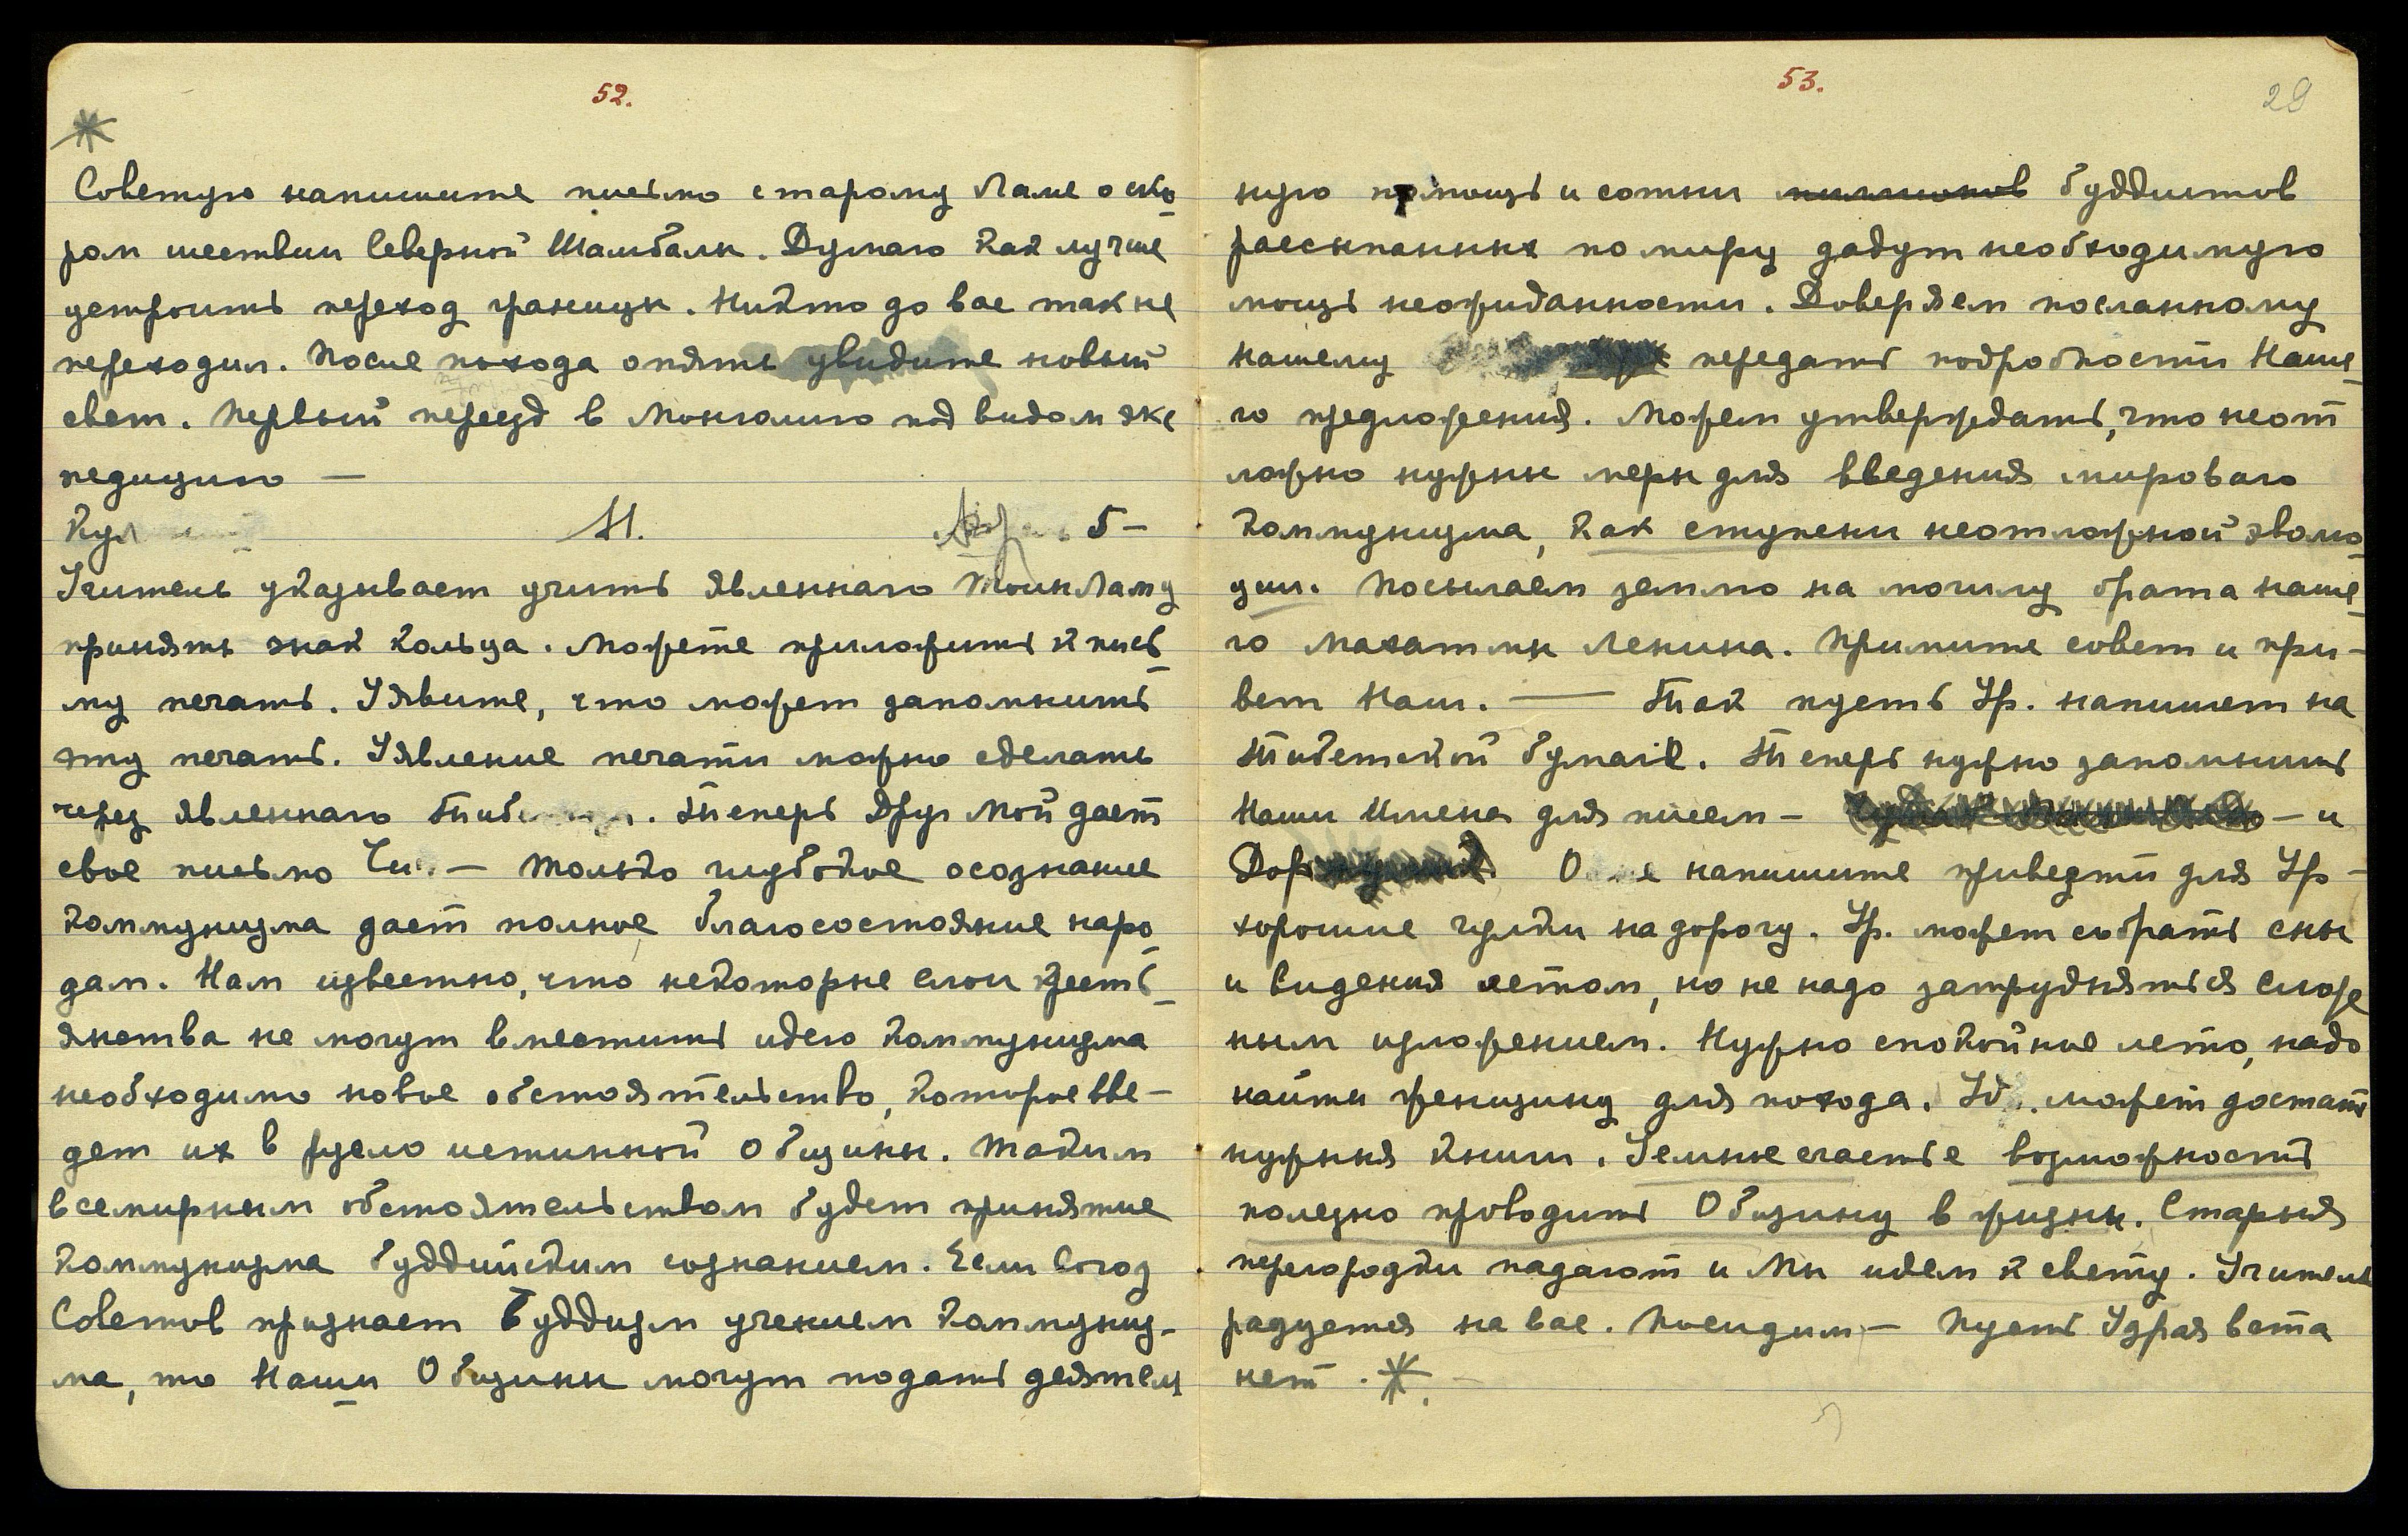 52.
Советую напишите письмо старому Ламе о ско
ром шествии Северной Шамбалы. Думаю как лучше
устроить переход границы. Никто до вас так не
переходил. После похода опять увидите новый
свет. Первый переезд в Монголию под видом экс
педицию —
М. 5 —
Учитель указывает учить явленнаго Тоин Ламу
принять знак кольца. Можете приложить к пись
му печать. Уявите, что может запомнить
эту печать. Уявление печати можно сделать
через явленнаго . Теперь Друг Мой дает
свое письмо — только глубокое осознание
коммунизма дает полное благосостояние наро
дам. Нам известно, что некоторые слои кресть
янства не могут вместить идею коммунизма
необходимо новое обстоятельство, которое вве-
дет их в русло истинной Общины. Таким
всемирным обстоятельством будет принятие
коммунизма буддийским сознанием. Если Союз
Советов признает Буддизм учением коммуниз-
ма, то Наши Общины могут подать деятель
53.
28
ную помощь и сотни миллионов буддистов
рассыпанных по миру дадут необходимую
мощь неожиданности. Доверяем посланному
нашему передать подробности Наше
го предложения. Можем утверждать, что неот
ложно нужны меры для введения мирового
коммунизма, как ступени неотложной эволю
ции. Посылаем землю на могилу брата наше
го Махатмы Ленина. Примите совет и при-
вет Наш. — Так пусть Ур. напишет на
Тибетской бумаге. Теперь нужно запомнить
Наши Имена для писем — — и
Дор напишите привезти для Ур —
хорошие чулки на дорогу. Ур. может собрать сны
и видения летом, но не надо затрудняться слож
ным изложением. Нужно спокойное лето, надо
найти женщину для похода. может достать
нужныя книги. счастье возможность
полезно проводить Общину в жизнь. Старыя
перегородки падают и Мы идем к свету. Учитель
радуется на вас. Посидим — Пусть Удрая вста
нет.